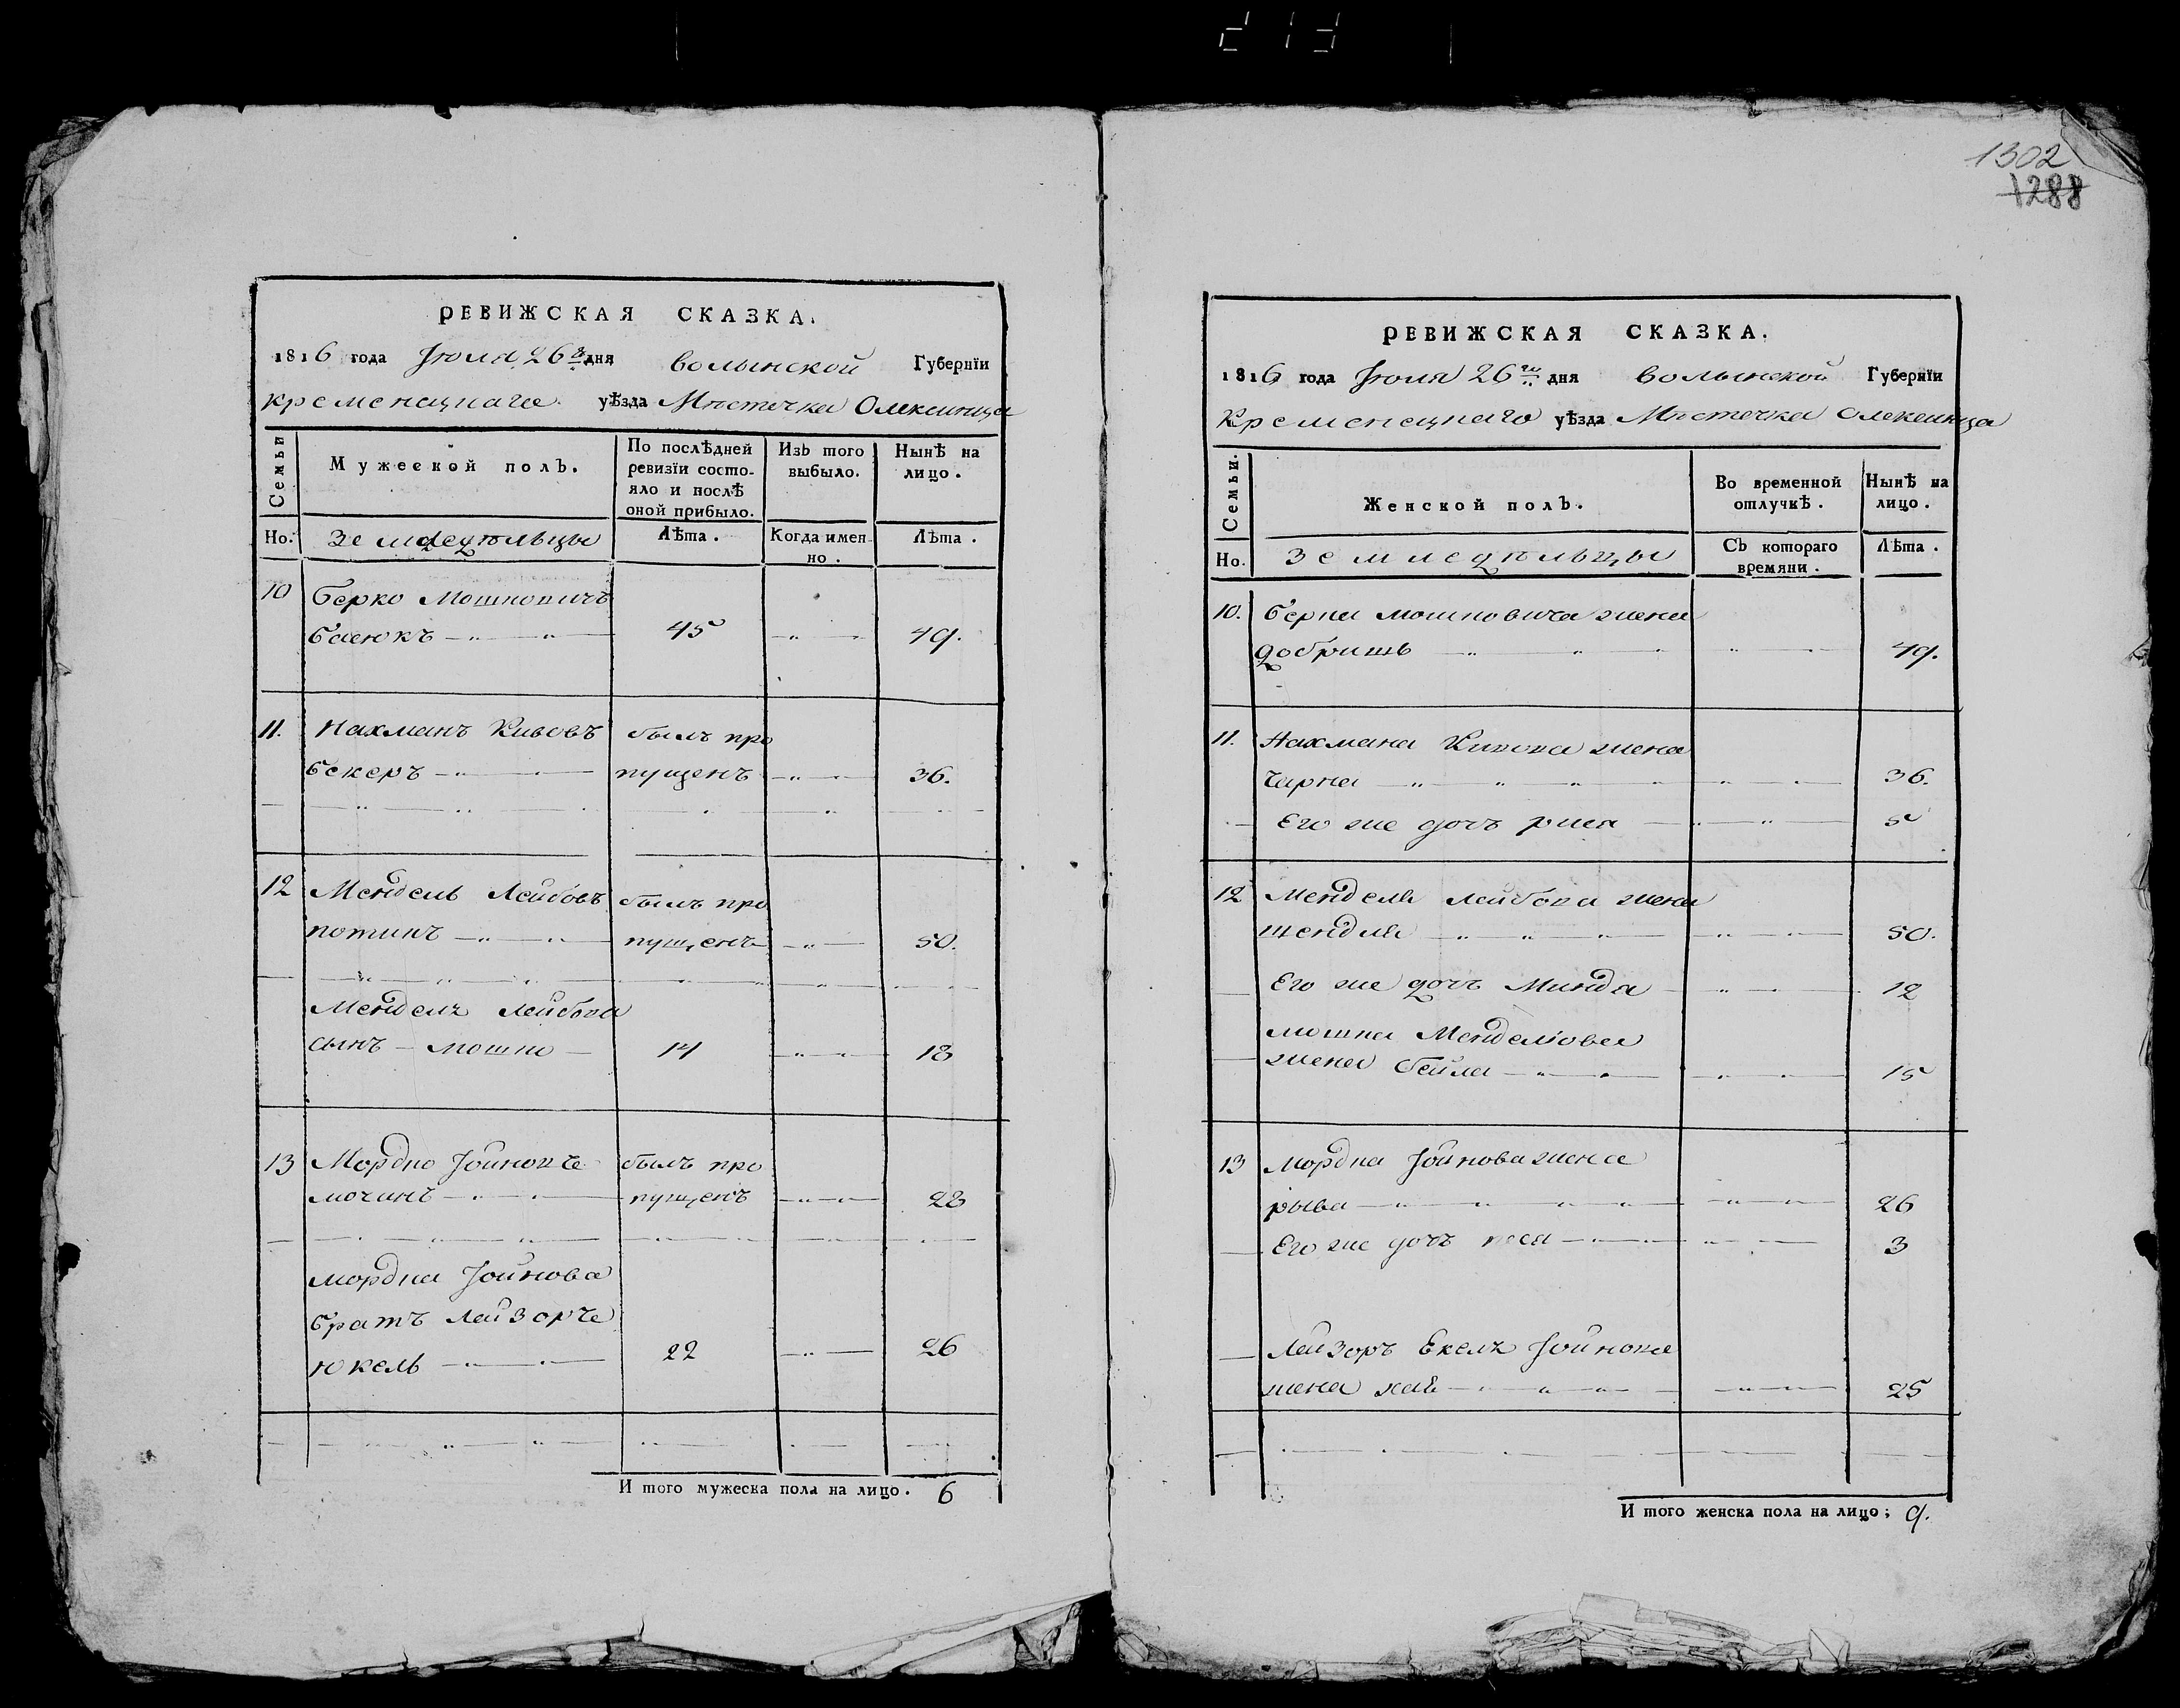 1302
1288
РЕВИЖСКАЯ СКАЗКА.
1816 года Іюля 26 дня Волынской Губернїи
Кременецкаго уѣзда Мѣстечка Олексинца
Семьи
Мужеской полъ.
По послѣдней ревизїи состо-
яло и послѣ
оной прибыло.
Изъ того
выбыло.
Нынѣ на
лицо.
Но.
Земледѣльцы
Лѣта.
Когда имен-
но.
Лѣта.
10 Берко Мошковичъ
45 49.
11. Нахманъ Кивовъ былъ про
Бекеръ пущенъ 36.
12 Мендель Лейбовъ былъ про
пущенъ 50.
Менделя Лейбова
сынъ Мошко 14 18
13 Мордко Іойновъ былъ про
пущенъ 28
Мордка Іойнова
братъ Лейзоръ
Юкель 22 26
И того мужеска пола на лицо. 6
РЕВИЖСКАЯ СКАЗКА.
1816 года Іюля 26 дня Волынской Губернїи
Кременецкаго уѣзда Мѣстечка Олексинца
Семьи.
Женской полъ.
Во временной
отлучкѣ.
Нынѣ на
лицо.
Но.
Земледѣльцы
Съ котораго
времяни.
Лѣта.
10. Берка Мошковича жена
Добришь 49.
11. Нахмана Кивова жена
Чарна 36.
Его же дочъ 5
12 Менделя Лейбова жена
Шендля 50.
Его же дочъ Минда 12
Мошка Менделіова
жена Бейла 15
13 Мордка Іойнова жена
рыва 26
Его же дочъ песя 3
Лейзоръ Екеля Іойнова
жена хая 25
И того женска пола на лицо; 9.